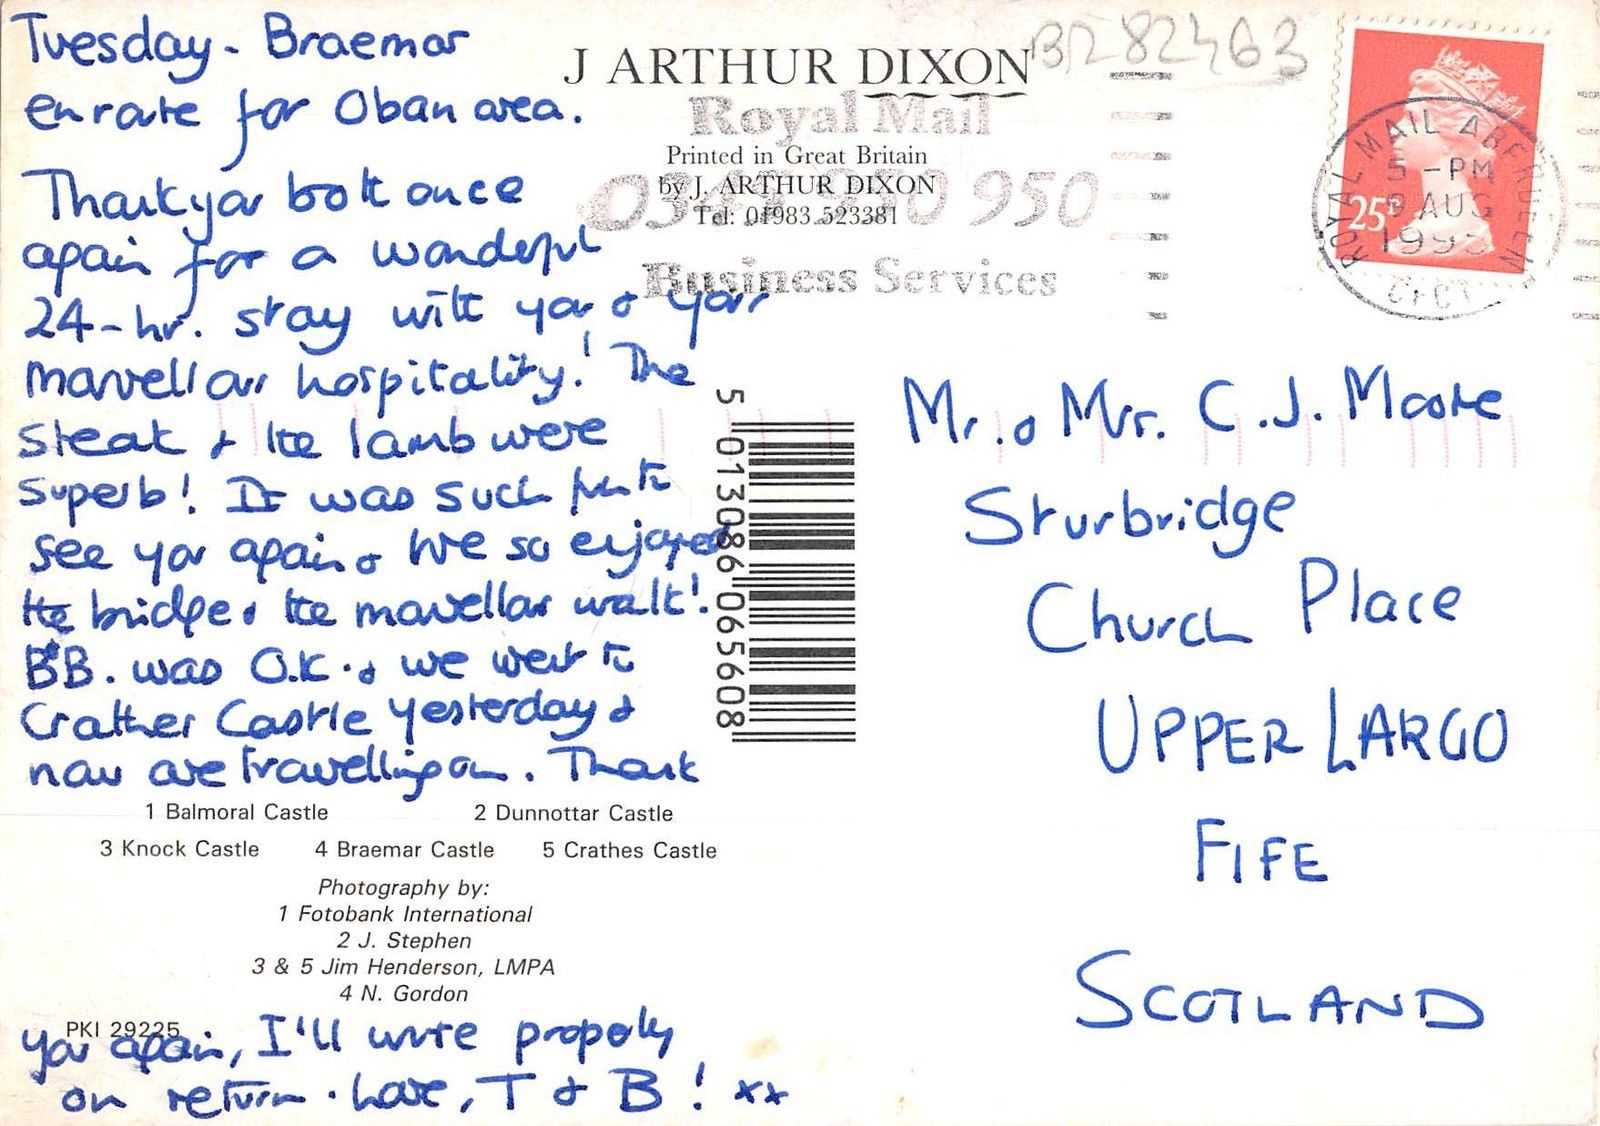 Tuesday - Braemar
en route for Oban area.
Thankyou both once
again for a wonderful
24-hr. stay with you & your
marvellous hospitality! The
steak & the lamb were
superb! It was such fun to
see you again & we so enjoyed
the bridge & the marvellous walk!
BB. was O.K. & we went to
Crathes Castle yesterday &
now are travelling on. Thank
1 Balmoral Castle 2 Dunnottar Castle
3 Knock Castle 4 Braemar Castle 5 Crathes Castle
Photography by:
1 Fotobank International
2 J. Stephen
3 & 5 Jim Henderson, LMPA
4 N. Gordon
PKI 29225
you again, I'll write properly
on return. Love, T & B! xx
J ARTHUR DIXON
Printed in Great Britain
by J. ARTHUR DIXON
Tel: 01983 523381
Royal Mail
950
Business Services
BR82463
5 013086 065608
25P
ROYAL MAIL ABERDEEN
5 - PM
9 AUG
Mr. & Mrs. C.J. Moore
Sturbridge
Church Place
UPPER LARGO
FIFE
SCOTLAND